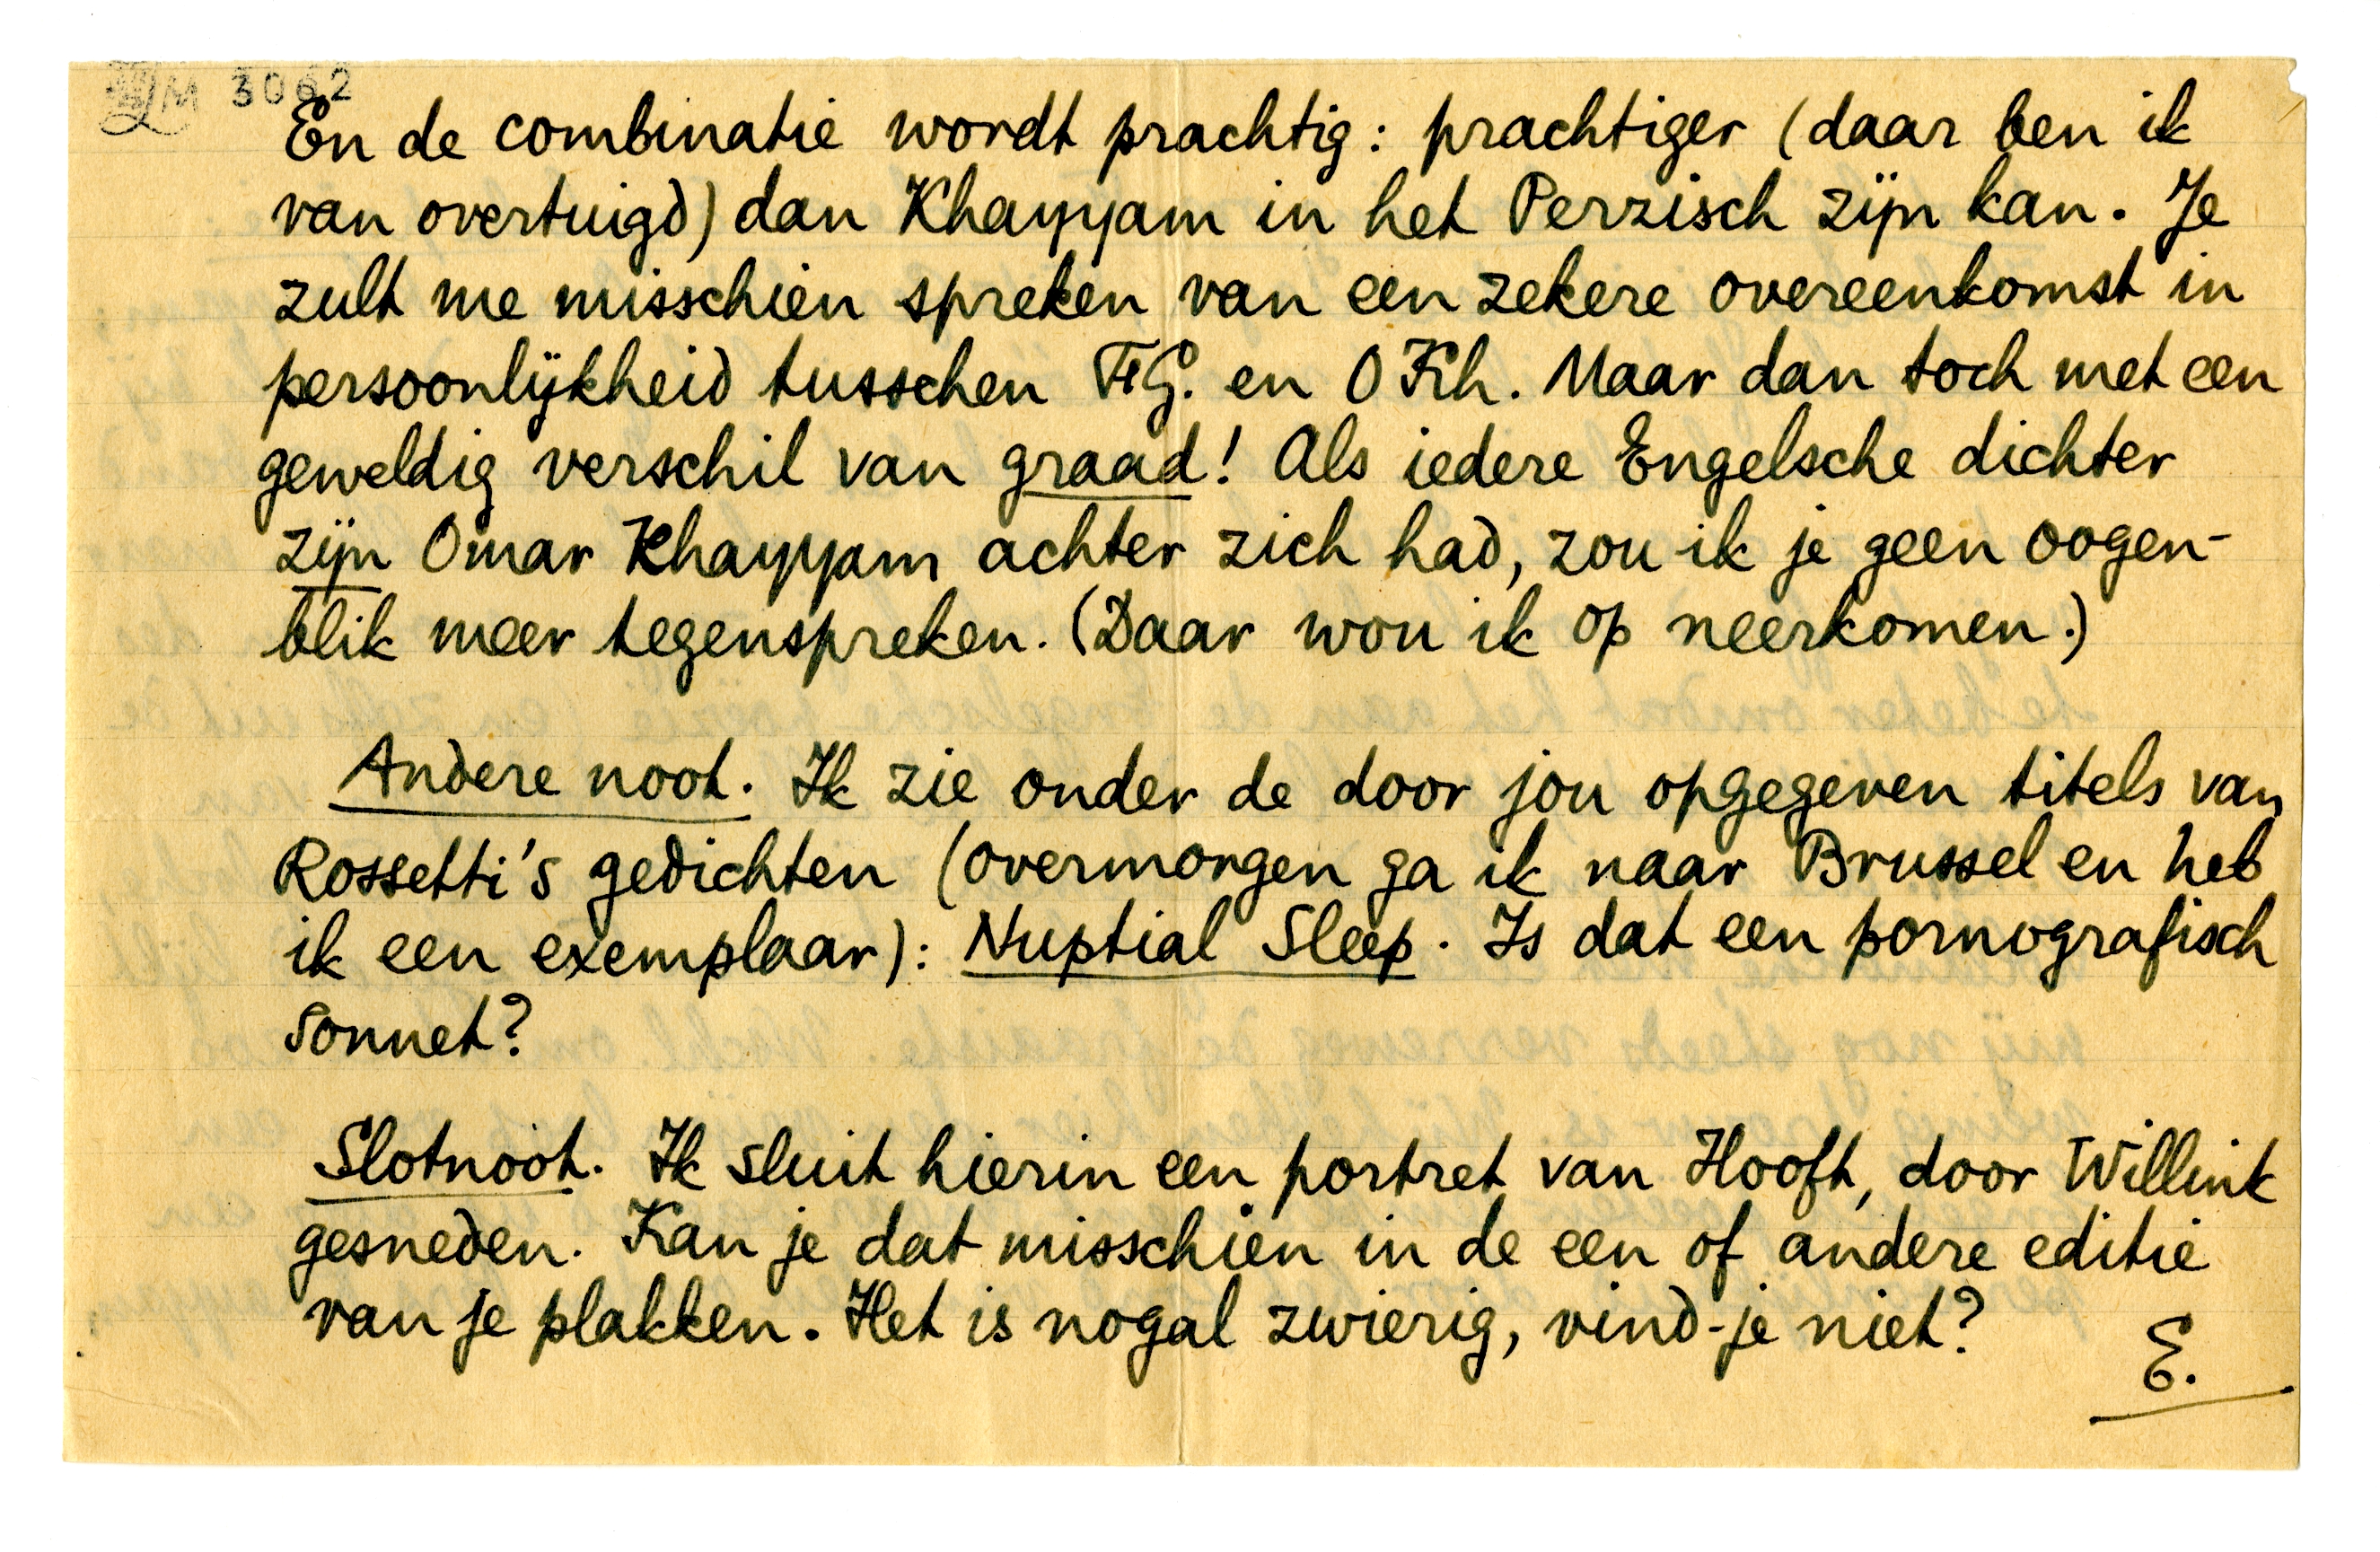 3062
En de combinatie wordt prachtig: prachtiger (daar ben ik
van overtuigd) dan Khayyam in het Perzisch zijn kan. Je
zult me misschien spreken van een zekere overeenkomst in
persoonlijkheid tusschen FG. en O Kh. Maar dan toch met een
geweldig verschil van graad! Als iedere Engelsche dichter
zijn Omar Khayyam achter zich had, zou ik je geen oogen-
blik meer tegenspreken. (Daar wou ik op neerkomen.)
Andere noot. Ik zie onder de door jou opgegeven titels van
Rossetti's gedichten (overmorgen ga ik naar Brussel en heb
ik een exemplaar): Nuptial Sleep. Is dat een pornografisch
sonnet?
Slotnoot. Ik sluit hierin een portret van Hooft, door Willink
gesneden. Kan je dat misschien in de een of andere editie
van je plakken. Het is nogal zwierig, vind-je niet?
E.